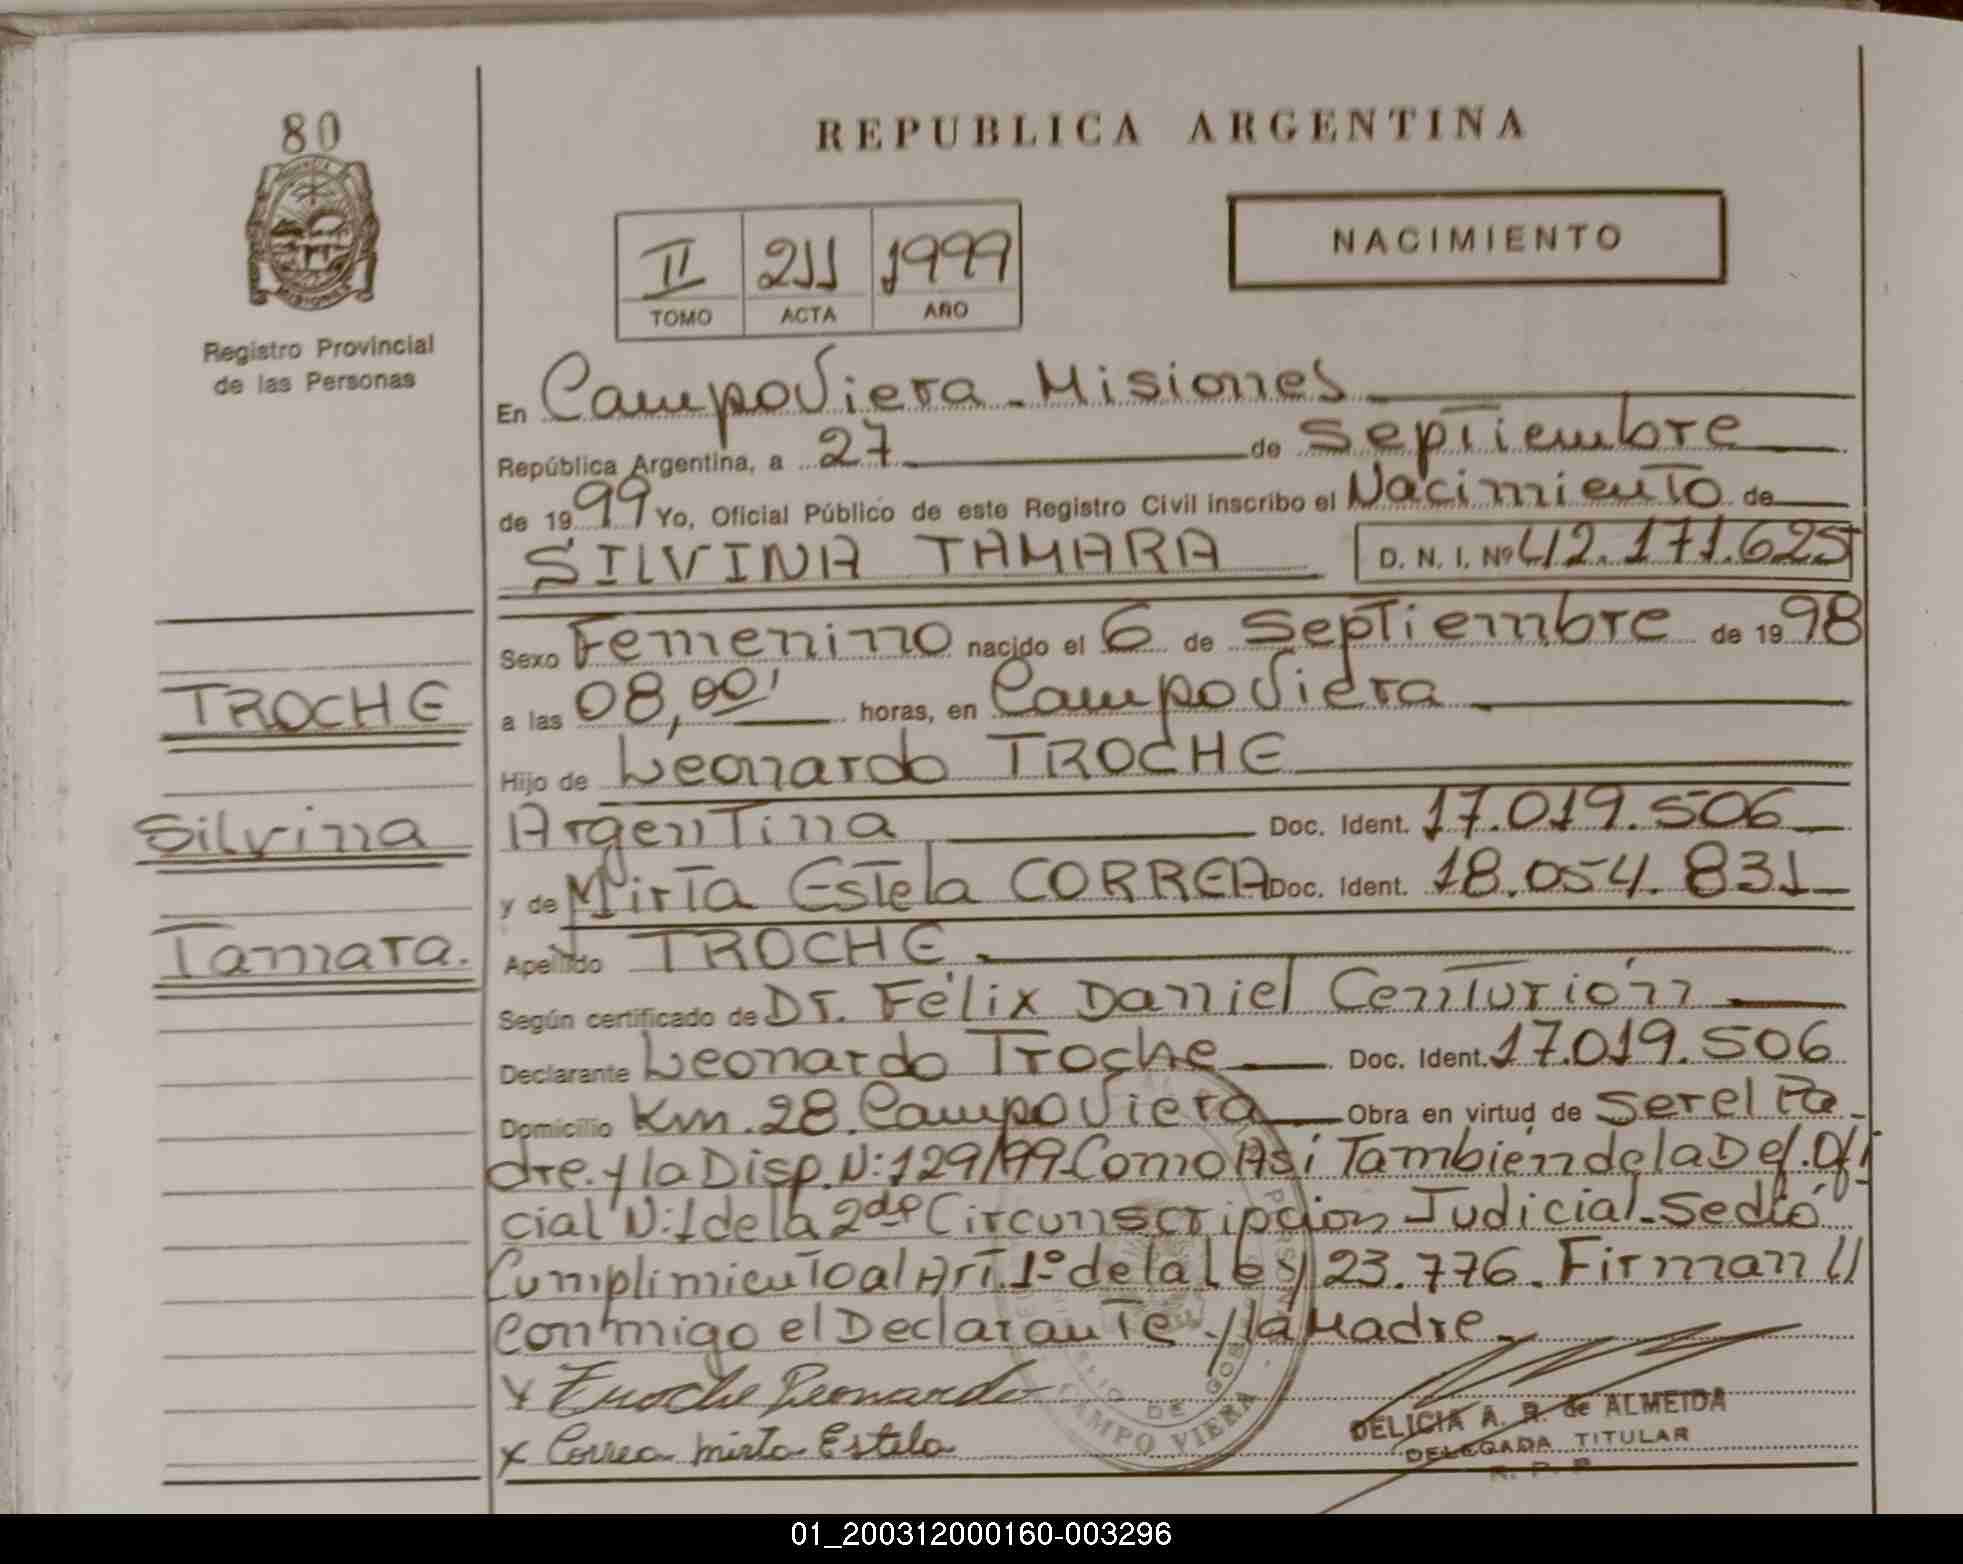 80
REPUBLICA ARGENTINA
MISIONES
Registro Provincial
de las Personas
II 211 1999
TOMO ACTA AÑO
NACIMIENTO
En Campo Viera - Misiones
República Argentina, a 27 de Septiembre
de 1999 Yo, Oficial Público de este Registro Civil inscribo el Nacimiento de
SILVINA TAMARA D. N. I. Nº 42.171.625
Sexo Femenino nacido el 6 de Septiembre de 1998
TROCHE
a las 08,00' horas, en Campo Viera
Hijo de Leonardo TROCHE
Silvina
Argentina Doc. Ident. 17.019.506
y de Mirta Estela CORREA Doc. Ident. 18.054.831
Tamara.
Apellido TROCHE
Según certificado de Dr. Félix Daniel Centurión
Declarante Leonardo Troche Doc. Ident. 17.019.506
Domicilio Km. 28. Campo Viera Obra en virtud de ser el Pa-
dre. y la Disp. N: 129/99 - Como Así También de la Def. Ofi
cial N: 1 de la 2da Circunscripción Judicial - Se dió
Cumplimiento al Art. 1º de la ley 23.776. Firman //
Conmigo el Declarante y la Madre -
x Troche Leonardo
x Correa Mirta Estela
CAMPO VIERA
DELICIA A. R. de ALMEIDA
DELEGADA TITULAR
R. P. P.
01_200312000160-003296